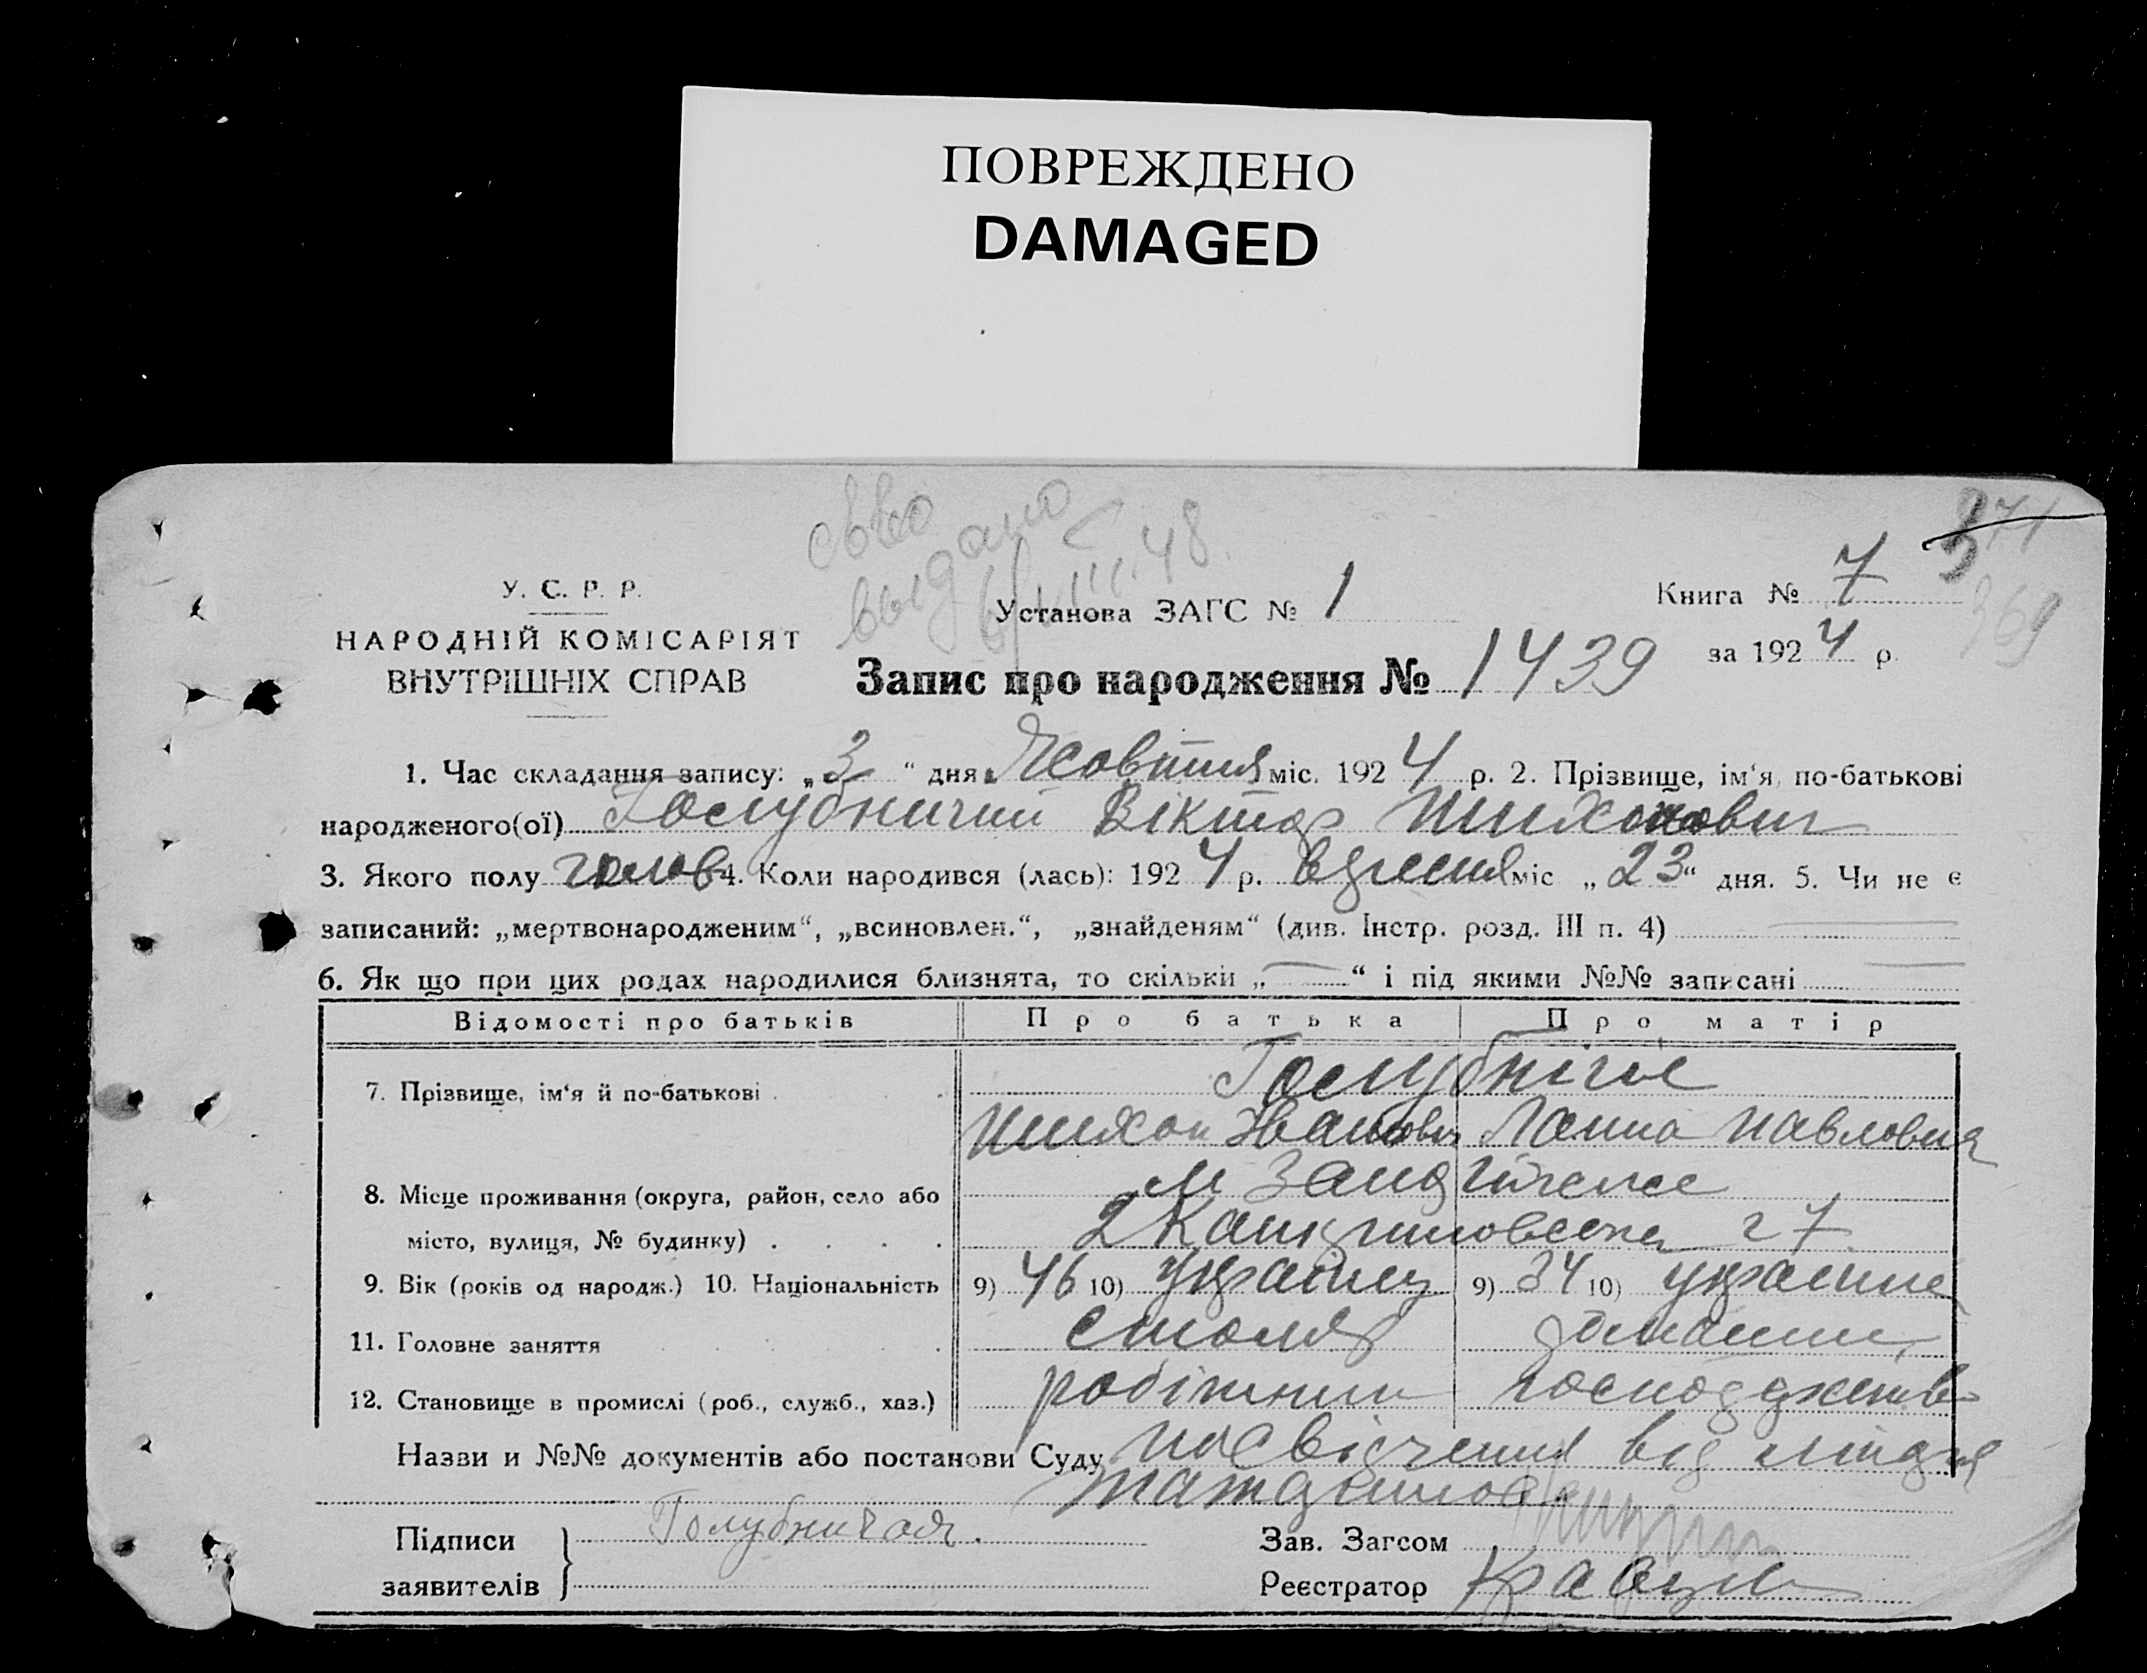 ПОВРЕЖДЕНО
DAMAGED
371
369
выдано
III 48.
У. С. Р. Р.
НАРОДНІЙ КОМІСАРІЯТ
ВНУТРІШНІХ СПРАВ
Установа ЗАГС № 1
Книга № 7
за 1924 р.
Запис про народження № 1439
1. Час складання запису: „3“ дня Жовтня міс. 1924 р. 2. Прізвище, ім‘я, по-батькові
народженого(ої) Голубничий Віктор Тихонович
3. Якого полу голов 4. Коли народився (лась): 1924 р. вересня міс „23“ дня. 5. Чи не є
записаний: „мертвонародженим“, „всиновлен.“, „знайденям“ (див. Інстр. розд. III п. 4)
6. Як що при цих родах народилися близнята, то скільки „—“ і під якими №№ записані
Відомості про батьків Про батька Про матір
7. Прізвище, ім‘я й по-батькові Голубничі
Тихон Іванович Ганна Павловна
8. Місце проживання (округа, район, село або
місто, вулиця, № будинку) 27
9. Вік (років од народж.) 10. Національність 9) 46 10) українец 9) 34 10) україн
11. Головне заняття столяр домашн
12. Становище в промислі (роб., служб., хаз.) робітник
Назви и №№ документів або постанови Суду посвідчення від
Підписи Голубничая.
заявителів
Зав. Загсом
Реєстратор